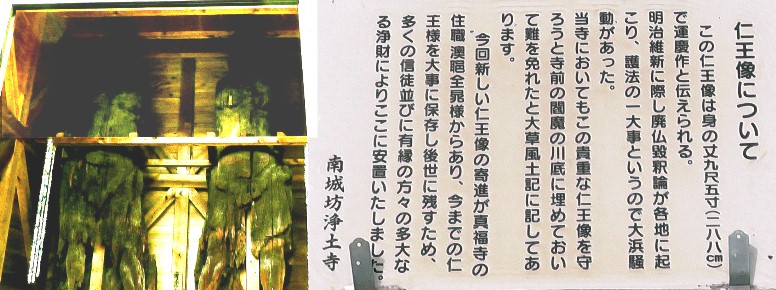 仁王像について
この仁王像は身の丈九尺五寸(二八八cm)
で運慶作と伝えられる。
明治維新に際し廃仏毀釈論が各地に起
こり、護法の一大事というので大浜騒
動があった。
当寺においてもこの貴重な仁王像を守
ろうと寺前の閻魔の川底に埋めておい
て難を免れたと大草風土記に記してあ
ります。
今回新しい仁王像の寄進が真福寺の
住職 澳聰全晃様からあり、今までの仁
王様を大事に保存し後世に残すため、
多くの信徒並びに有縁の方々の多大な
る浄財によりここに安置いたしました。
南城坊浄土寺